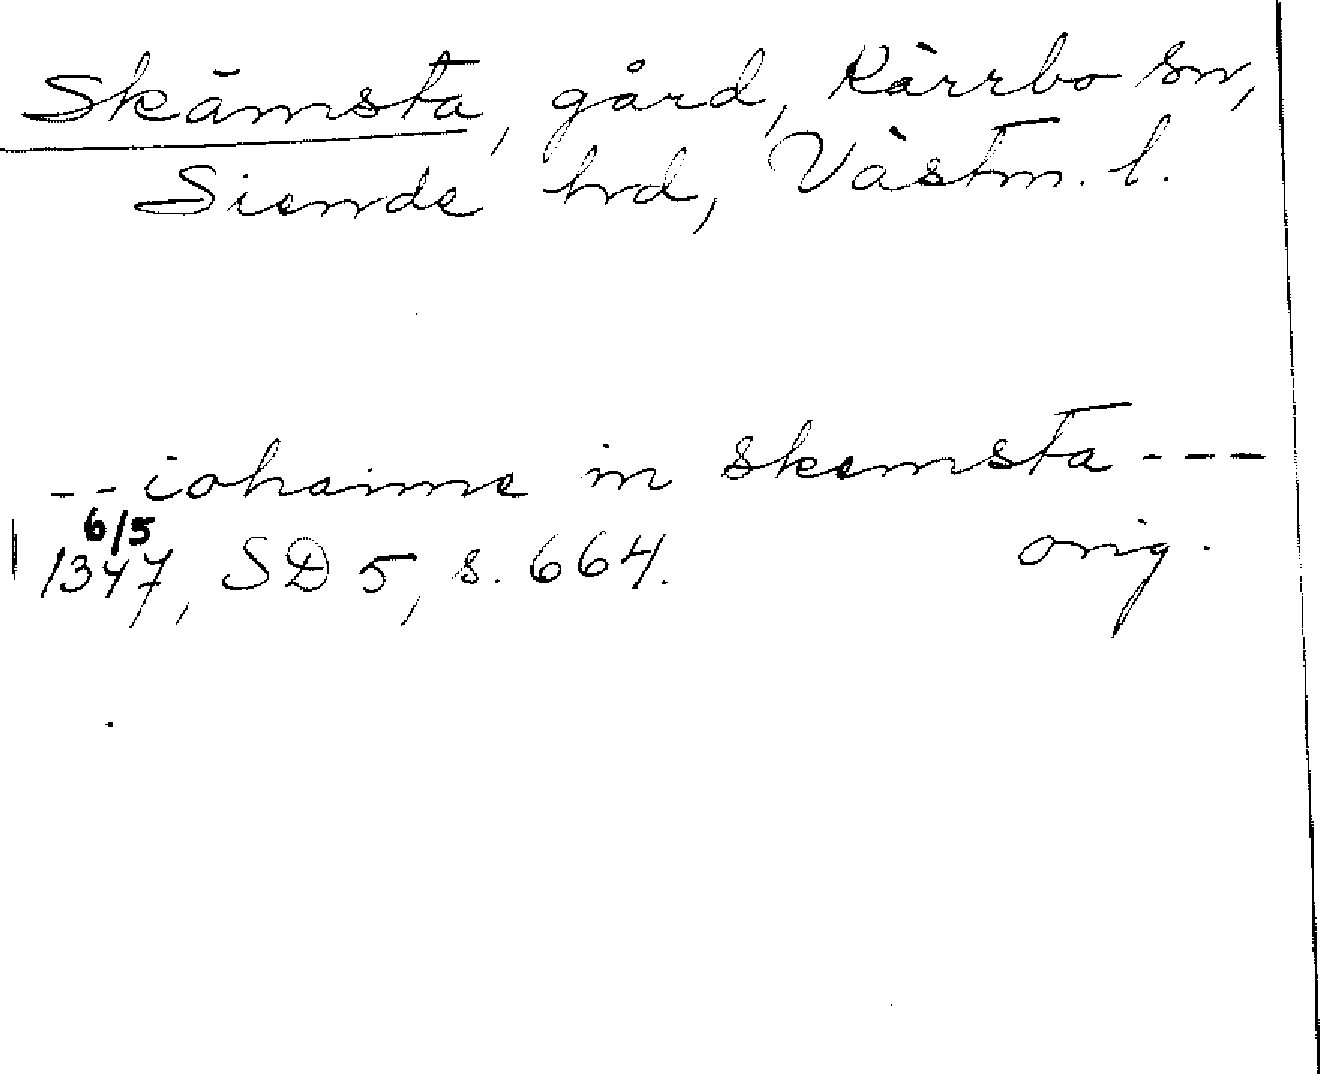 Skämsta, gård, Kärrbo sn,
Siende hrd, Västm. l.
-- iohanne in skemsta ---
6/5
1347, SD 5, s. 664. orig.